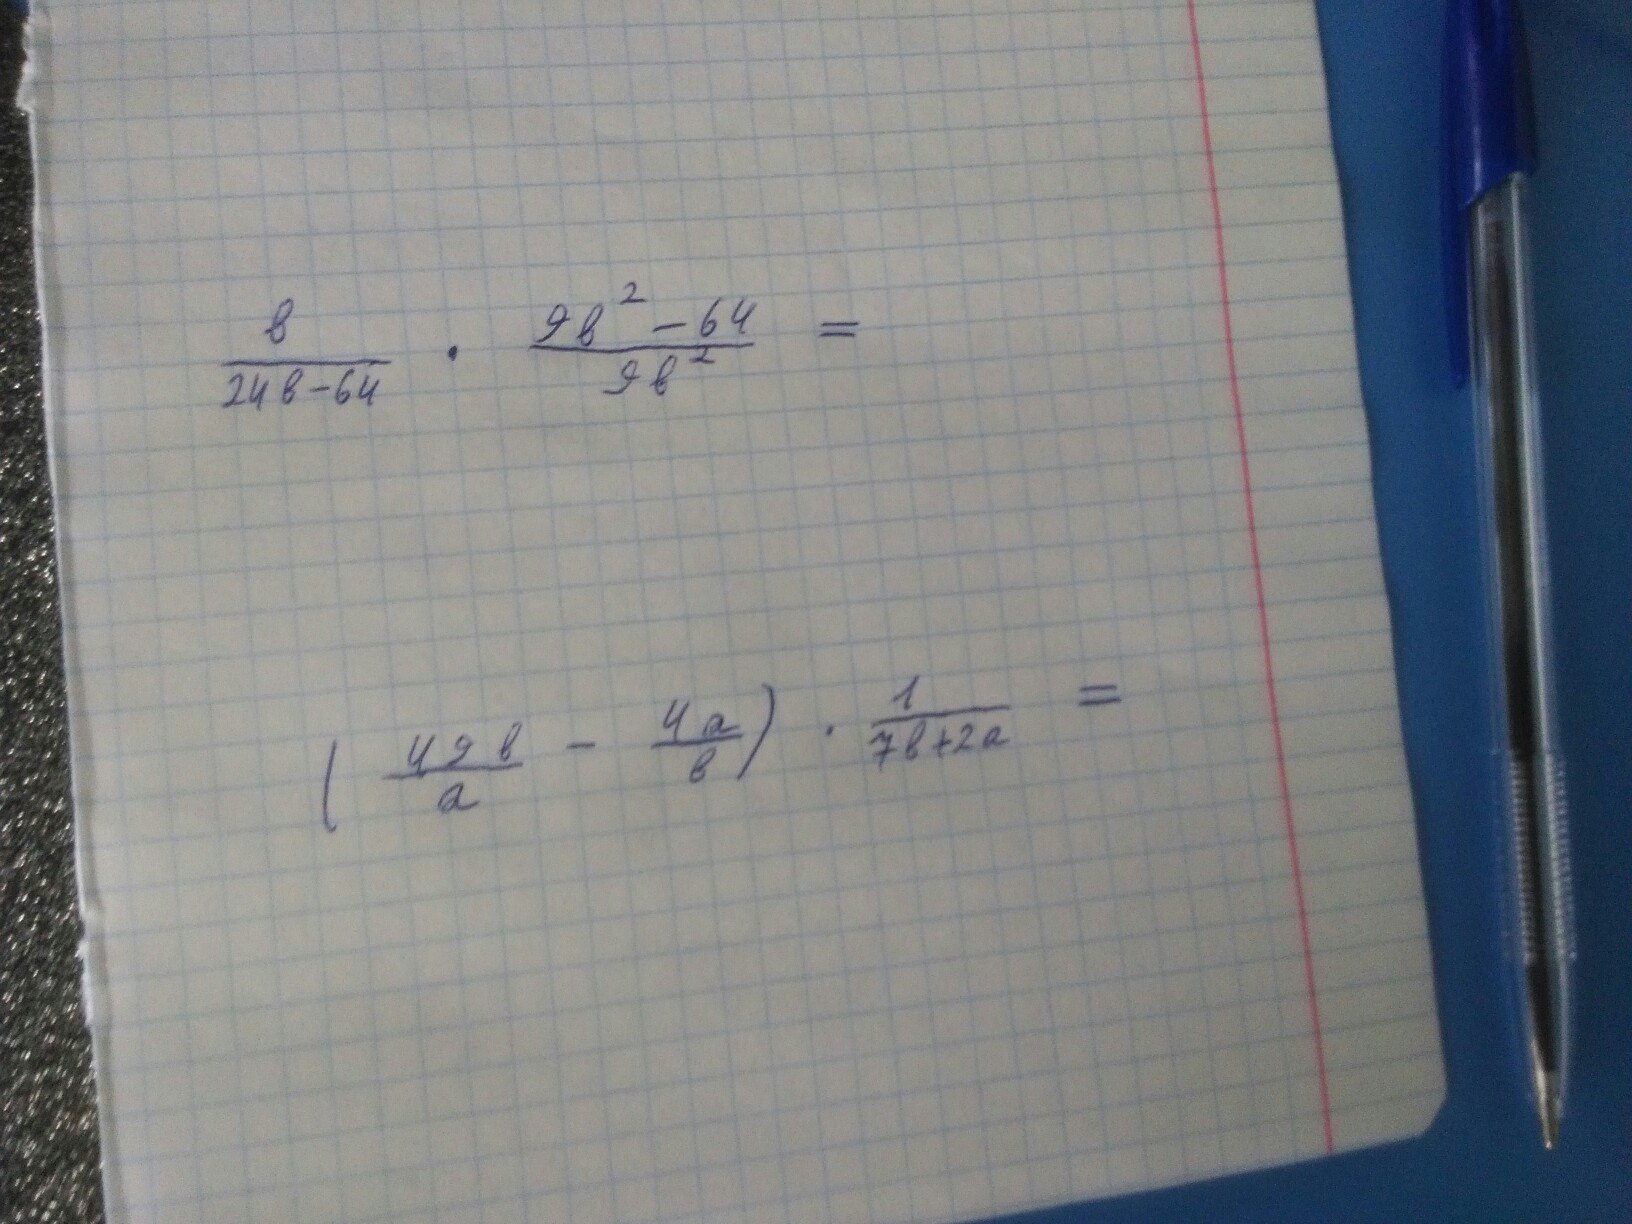 в/(24в-64) · (9в²-64)/(9в²) =
(49в/a - 4a/в) · 1/(7в+2a) =